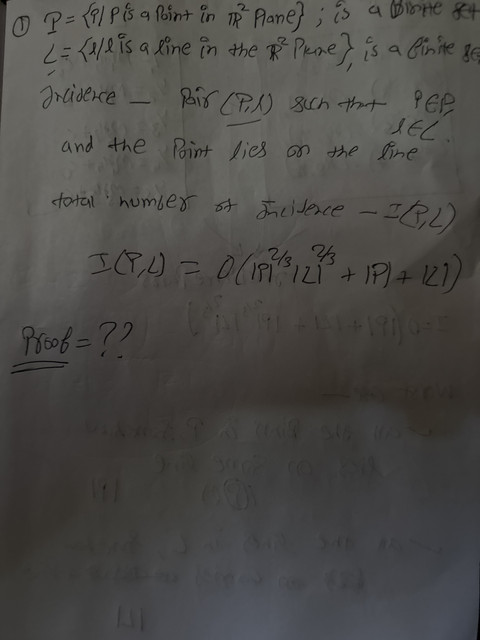 ① P = {P/P is a Point in ℝ² Plane} ; is a finite set
L = {l/l is a line in the ℝ² Plane}, is a finite se
Incidence — Pair (P,l) such that P∈P,
l∈L.
and the Point lies on the line
total number of Incidence — I(P,L)
I(P,L) = O(|P|^2/3 |L|^2/3 + |P| + |L|)
Proof = ??